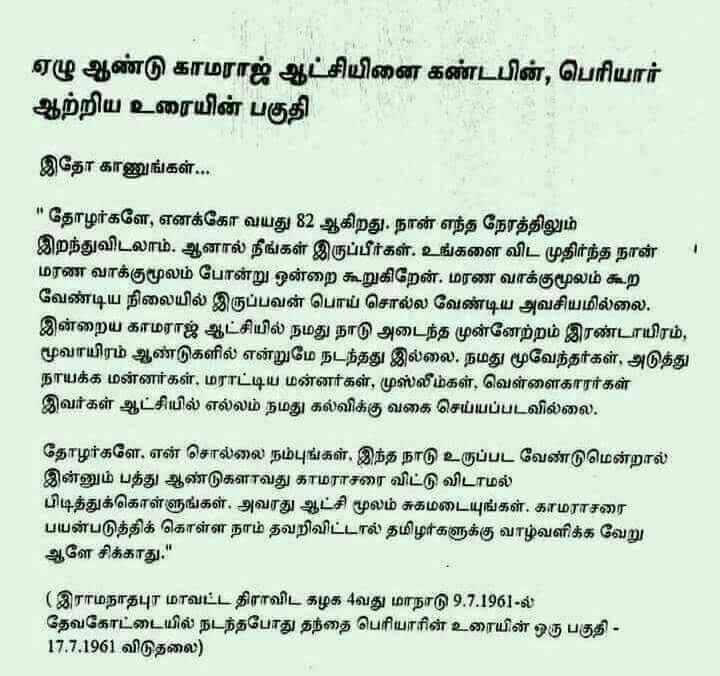 ஏழு ஆண்டு காமராஜ் ஆட்சியினை கண்டபின், பெரியார்
ஆற்றிய உரையின் பகுதி
இதோ காணுங்கள்...
" தோழர்களே, எனக்கோ வயது 82 ஆகிறது. நான் எந்த நேரத்திலும்
இறந்துவிடலாம். ஆனால் நீங்கள் இருப்பீர்கள். உங்களை விட முதிர்ந்த நான்
மரண வாக்குமூலம் போன்று ஒன்றை கூறுகிறேன். மரண வாக்குமூலம் கூற
வேண்டிய நிலையில் இருப்பவன் பொய் சொல்ல வேண்டிய அவசியமில்லை.
இன்றைய காமராஜ் ஆட்சியில் நமது நாடு அடைந்த முன்னேற்றம் இரண்டாயிரம்,
மூவாயிரம் ஆண்டுகளில் என்றுமே நடந்தது இல்லை. நமது மூவேந்தர்கள், அடுத்து
நாயக்க மன்னர்கள், மராட்டிய மன்னர்கள், முஸ்லீம்கள், வெள்ளைகாரர்கள்
இவர்கள் ஆட்சியில் எல்லம் நமது கல்விக்கு வகை செய்யப்படவில்லை.
தோழர்களே. என் சொல்லை நம்புங்கள். இந்த நாடு உருப்பட வேண்டுமென்றால்
இன்னும் பத்து ஆண்டுகளாவது காமராசரை விட்டு விடாமல்
பிடித்துக்கொள்ளுங்கள். அவரது ஆட்சி மூலம் சுகமடையுங்கள். காமராசரை
பயன்படுத்திக் கொள்ள நாம் தவறிவிட்டால் தமிழர்களுக்கு வாழ்வளிக்க வேறு
ஆளே சிக்காது."
( இராமநாதபுர மாவட்ட திராவிட கழக 4வது மாநாடு 9.7.1961-ல்
தேவகோட்டையில் நடந்தபோது தந்தை பெரியாரின் உரையின் ஒரு பகுதி -
17.7.1961 விடுதலை)